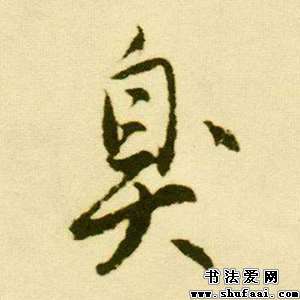 臭
书法爱网
www.shufaai.com